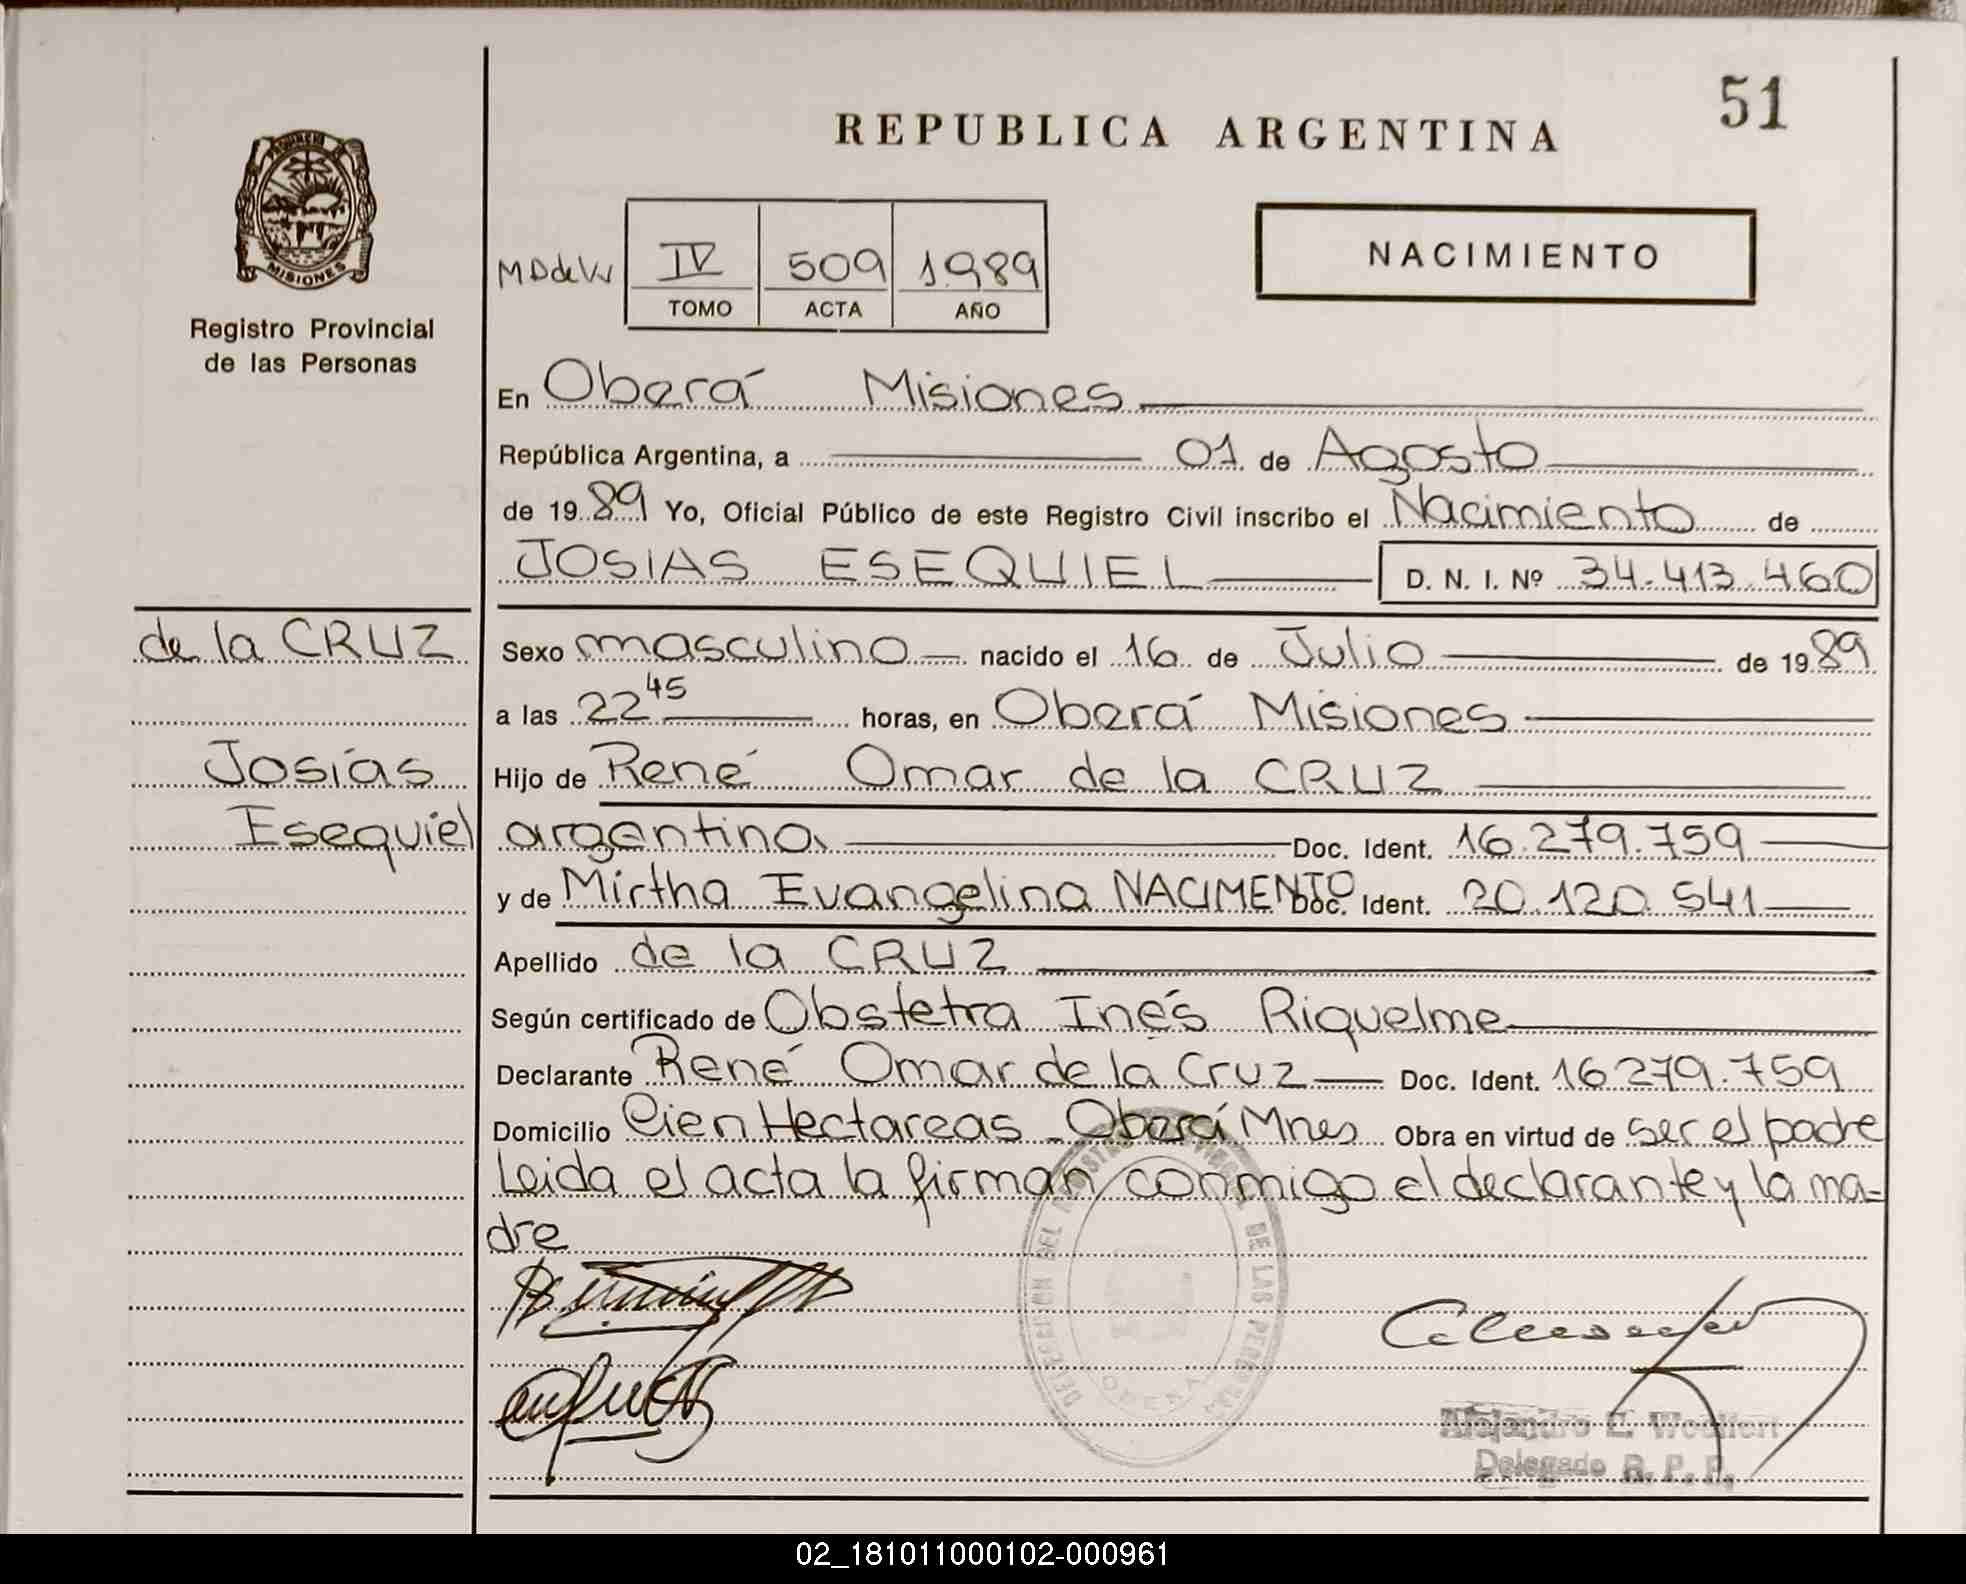 51
REPUBLICA ARGENTINA
PROVINCIA DE
MISIONES
Registro Provincial
de las Personas
IV 509 1989
TOMO ACTA AÑO
NACIMIENTO
En Oberá Misiones
República Argentina, a 01 de Agosto
de 1989 Yo, Oficial Público de este Registro Civil inscribo el Nacimiento de
JOSIAS ESEQUIEL D. N. I. Nº 34.413.460
de la CRUZ
Josías
Esequiel
Sexo masculino nacido el 16 de Julio de 1989
a las 22 45 horas, en Oberá Misiones
Hijo de René Omar de la CRUZ
argentino Doc. Ident. 16.279.759
y de Mirtha Evangelina NACIMENTO Doc. Ident. 20.120.541
Apellido de la CRUZ
Según certificado de Obstetra Inés Riquelme
Declarante René Omar de la Cruz Doc. Ident. 16279.759
Domicilio Cien Hectareas - Oberá Mnes Obra en virtud de ser el padre
Leida el acta la firman conmigo el declarante y la ma-
dre
DELEGACION DEL REGISTRO PROVINCIAL DE LAS PERSONAS
Alejandro E.
Delegado R. P. P.
02_181011000102-000961